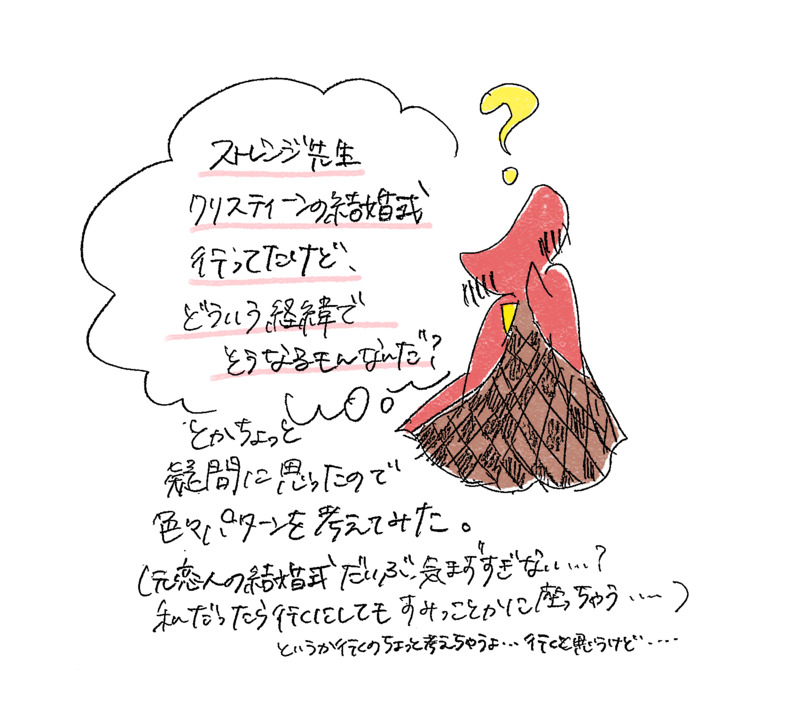 ストレンジ先生
クリスティーンの結婚式
行ってたけど、
どういう経緯で
そうなるもんなんだ?
とかちょっと
疑問に思ったので
色々パターンを考えてみた。
(元恋人の結婚式だいぶ気まずすぎない…?
私だったら行くにしてもすみっことかに座っちゃう…)
というか行くのちょっと考えちゃうよ…行くと思うけど…
?